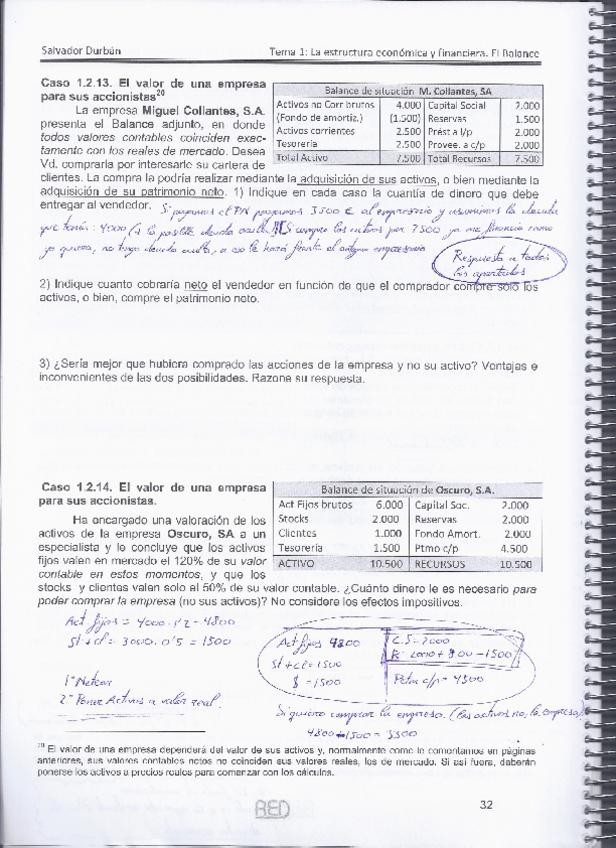 Salvador Durbán Tema 1: La estructura económica y financiera. El Balance
Caso 1.2.13. El valor de una empresa
para sus accionistas20
La empresa Miguel Collantes, S.A.
presenta el Balance adjunto, en donde
todos valores contables coinciden exac-
tamente con los reales de mercado. Desea
Vd. comprarla por interesarle su cartera de
Balance de situación M. Collantes, SA
Activos no Corr brutos 4.000 Capital Social 2.000
(Fondo de amortiz.) (1.500) Reservas 1.500
Activos corrientes 2.500 Prést a l/p 2.000
Tesorería 2.500 Provee. a c/p) 2.000
Total Activo 7.500 Total Recursos 7.500
clientes. La compra la podría realizar mediante la adquisición de sus activos, o bien mediante la
adquisición de su patrimonio neto. 1) Indique en cada caso la cuantía de dinero que debe
entregar al vendedor. Si pagamos el PN pagamos 3500 € al empresario y asumimos la deuda
que tenía: 4000 (+ la posible deuda oculta). Si compro los activos por 7500 ya me financio como
yo quiera, no tengo deuda oculta, a eso le hará frente el antiguo empresario
Respuesta a todos
los apartados
2) Indique cuanto cobraría neto el vendedor en función de que el comprador compre solo los
activos, o bien, compre el patrimonio neto.
3) ¿Sería mejor que hubiera comprado las acciones de la empresa y no su activo? Ventajas e
inconvenientes de las dos posibilidades. Razone su respuesta.
Caso 1.2.14. El valor de una empresa
para sus accionistas.
Ha encargado una valoración de los
activos de la empresa Oscuro, SA a un
especialista y le concluye que los activos
fijos valen en mercado el 120% de su valor
contable en estos momentos, y que los
Balance de situación de Oscuro, S.A.
Act Fijos brutos 6.000 Capital Soc. 2.000
Stocks 2.000 Reservas 2.000
Clientes 1.000 Fondo Amort. 2.000
Tesorería 1.500 Ptmo c/p 4.500
ACTIVO 10.500 RECURSOS 10.500
stocks y clientes valen solo el 50% de su valor contable. ¿Cuánto dinero le es necesario para
poder comprar la empresa (no sus activos)? No considere los efectos impositivos.
Act fijos = 4000 · 1'2 = 4800
St + cl = 3000 · 0'5 = 1500
1º Netear
2º Poner Activos a valor real.
Act fijos 4800 C.S = 2000
St + cl = 1500 R = 2000 + 800 - 1500
$ = 1500 Ptmo c/p = 4500
Si quiero comprar la empresa. (los activos no, la empresa)
20 El valor de una empresa dependerá del valor de sus activos y, normalmente como lo comentamos en páginas
anteriores, sus valores contables netos no coinciden sus valores reales, los de mercado. Si así fuera, deberán
ponerse los activos a precios reales para comenzar con los cálculos.
32